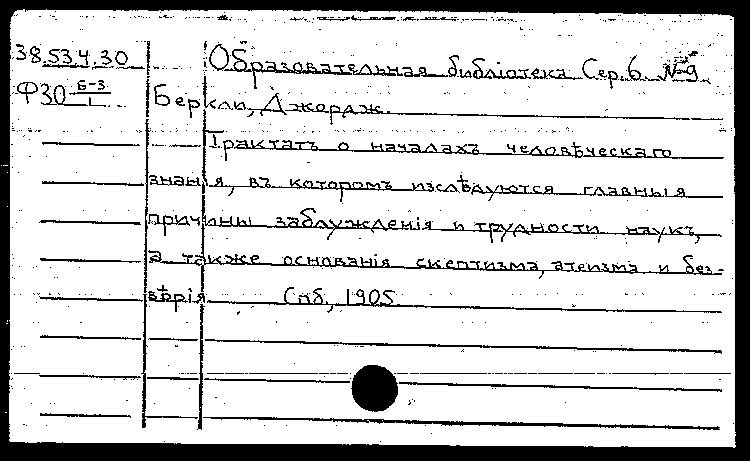 38.534.30
Образовательная библіотека Сер. 6. № 9.
Ф30 Б-3/1
Беркли, Джордж.
Трактатъ о началахъ человѣческаго
знанія, въ которомъ изслѣдуются главныя
причины заблужденія и трудности наукъ,
а также основанія скептизма, атеизма и без-
вѣрія Спб., 1905